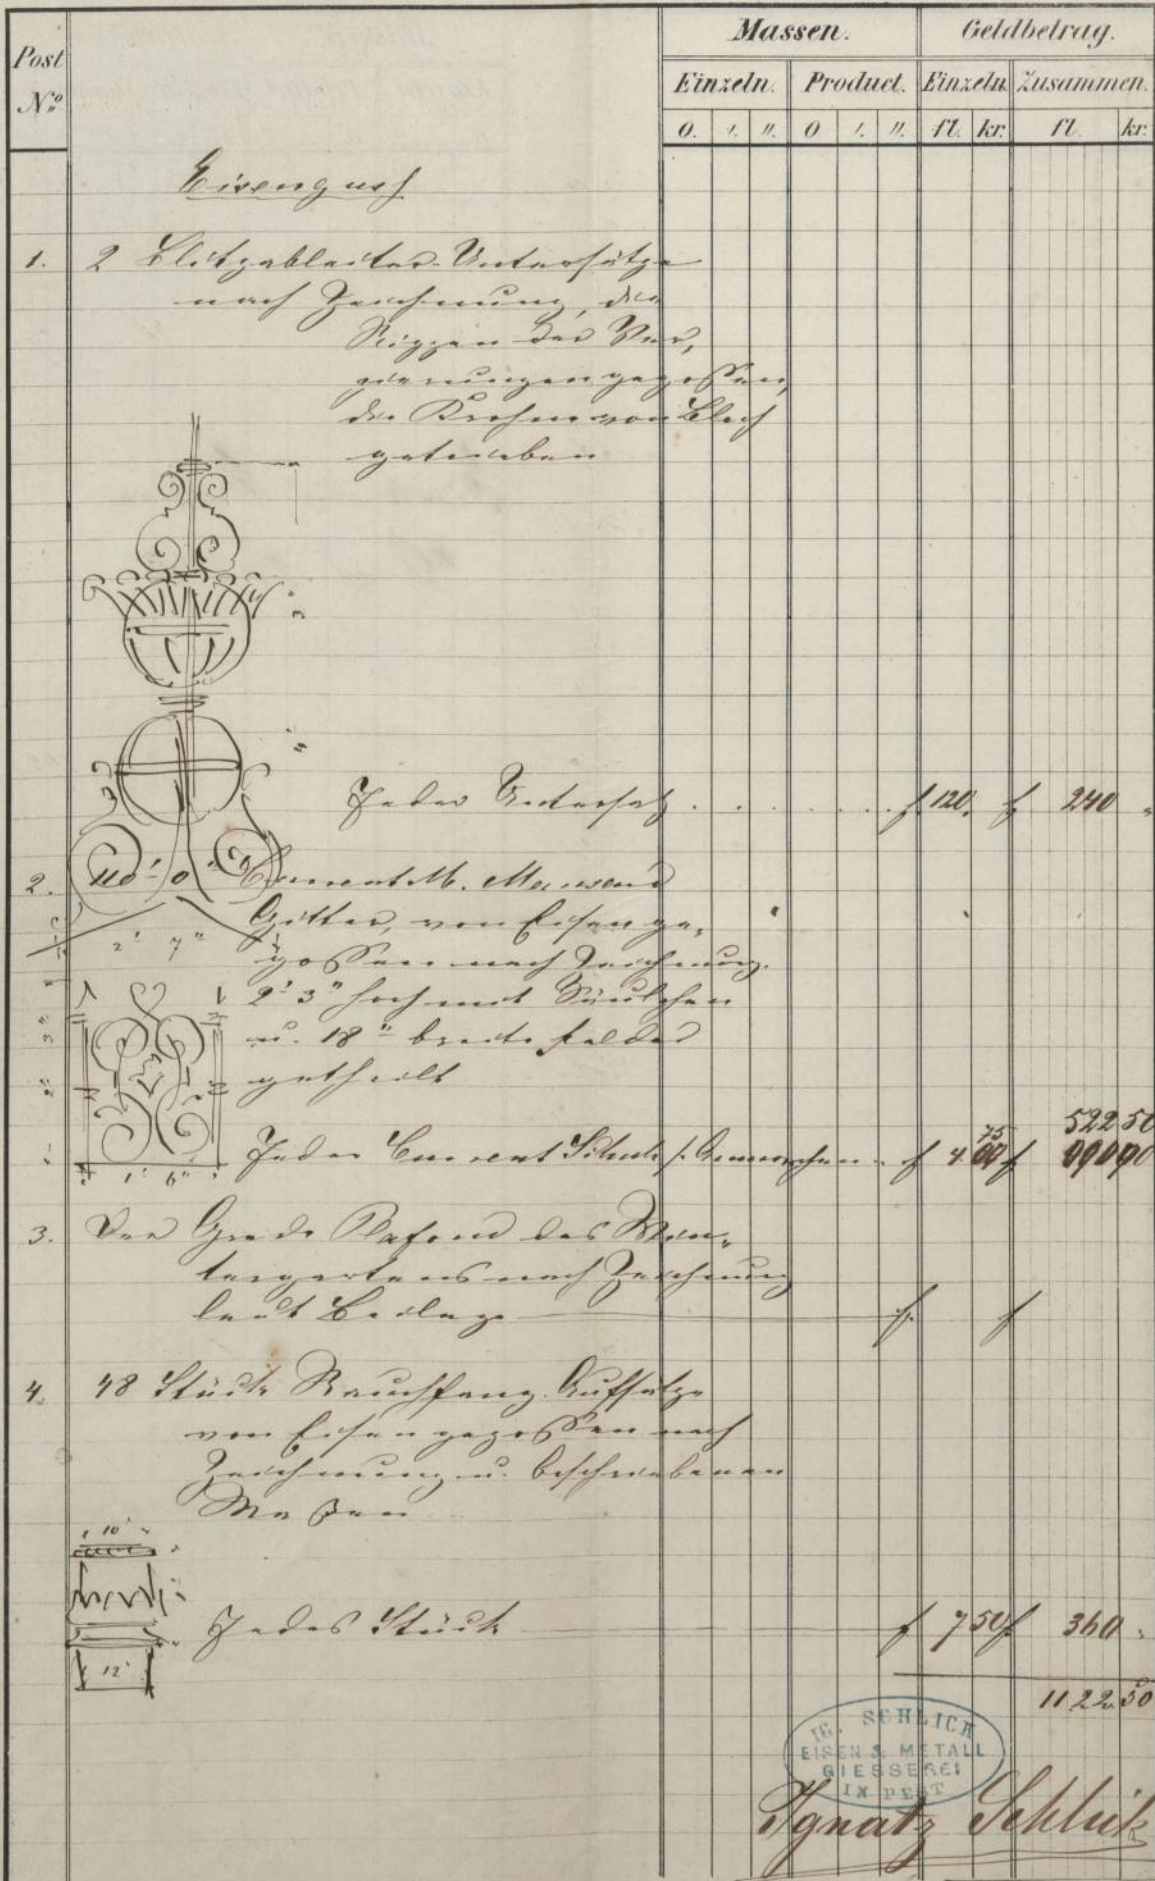 Post
Nº
Massen.
Geldbetrag.
Einzeln. Product. Einzeln. Zusammen.
0. ı. ıı. 0 ı. ıı. fl. kr. fl. kr.
Eisenguss
1. 2 Blitzableiter-Untersätze
nach Zeichnung, die
Rippen der Ver-
zierungen gegossen,
die Krohne von Blech
getrieben
Jeder Untersatz . . . . . . f 120. f 240 "
2. 110' 0" Current M. Mansard
Gitter, von Eisen ge-
gossen nach Zeichnung.
2' 3" hoch mit Säulchen
u. 18" breite Felder
getheilt
2' 7"
2' 3"
1' 6"
522 50
Jeder Current Schuh f 4. 75 f
3. Der Plafond des Win-
tergartens nach Zeichnung
laut Beilage f. f
4. 48 Stück Rauchfang-Aufsätze
von Eisen gegossen nach
Zeichnung u. beschriebenen
Maßen
10"
12"
Jedes Stück f 7 50 f 360 "
1122 50
IG. SCHLICK
EISEN & METALL
GIESSEREI
IN PEST
Ignatz Schlick